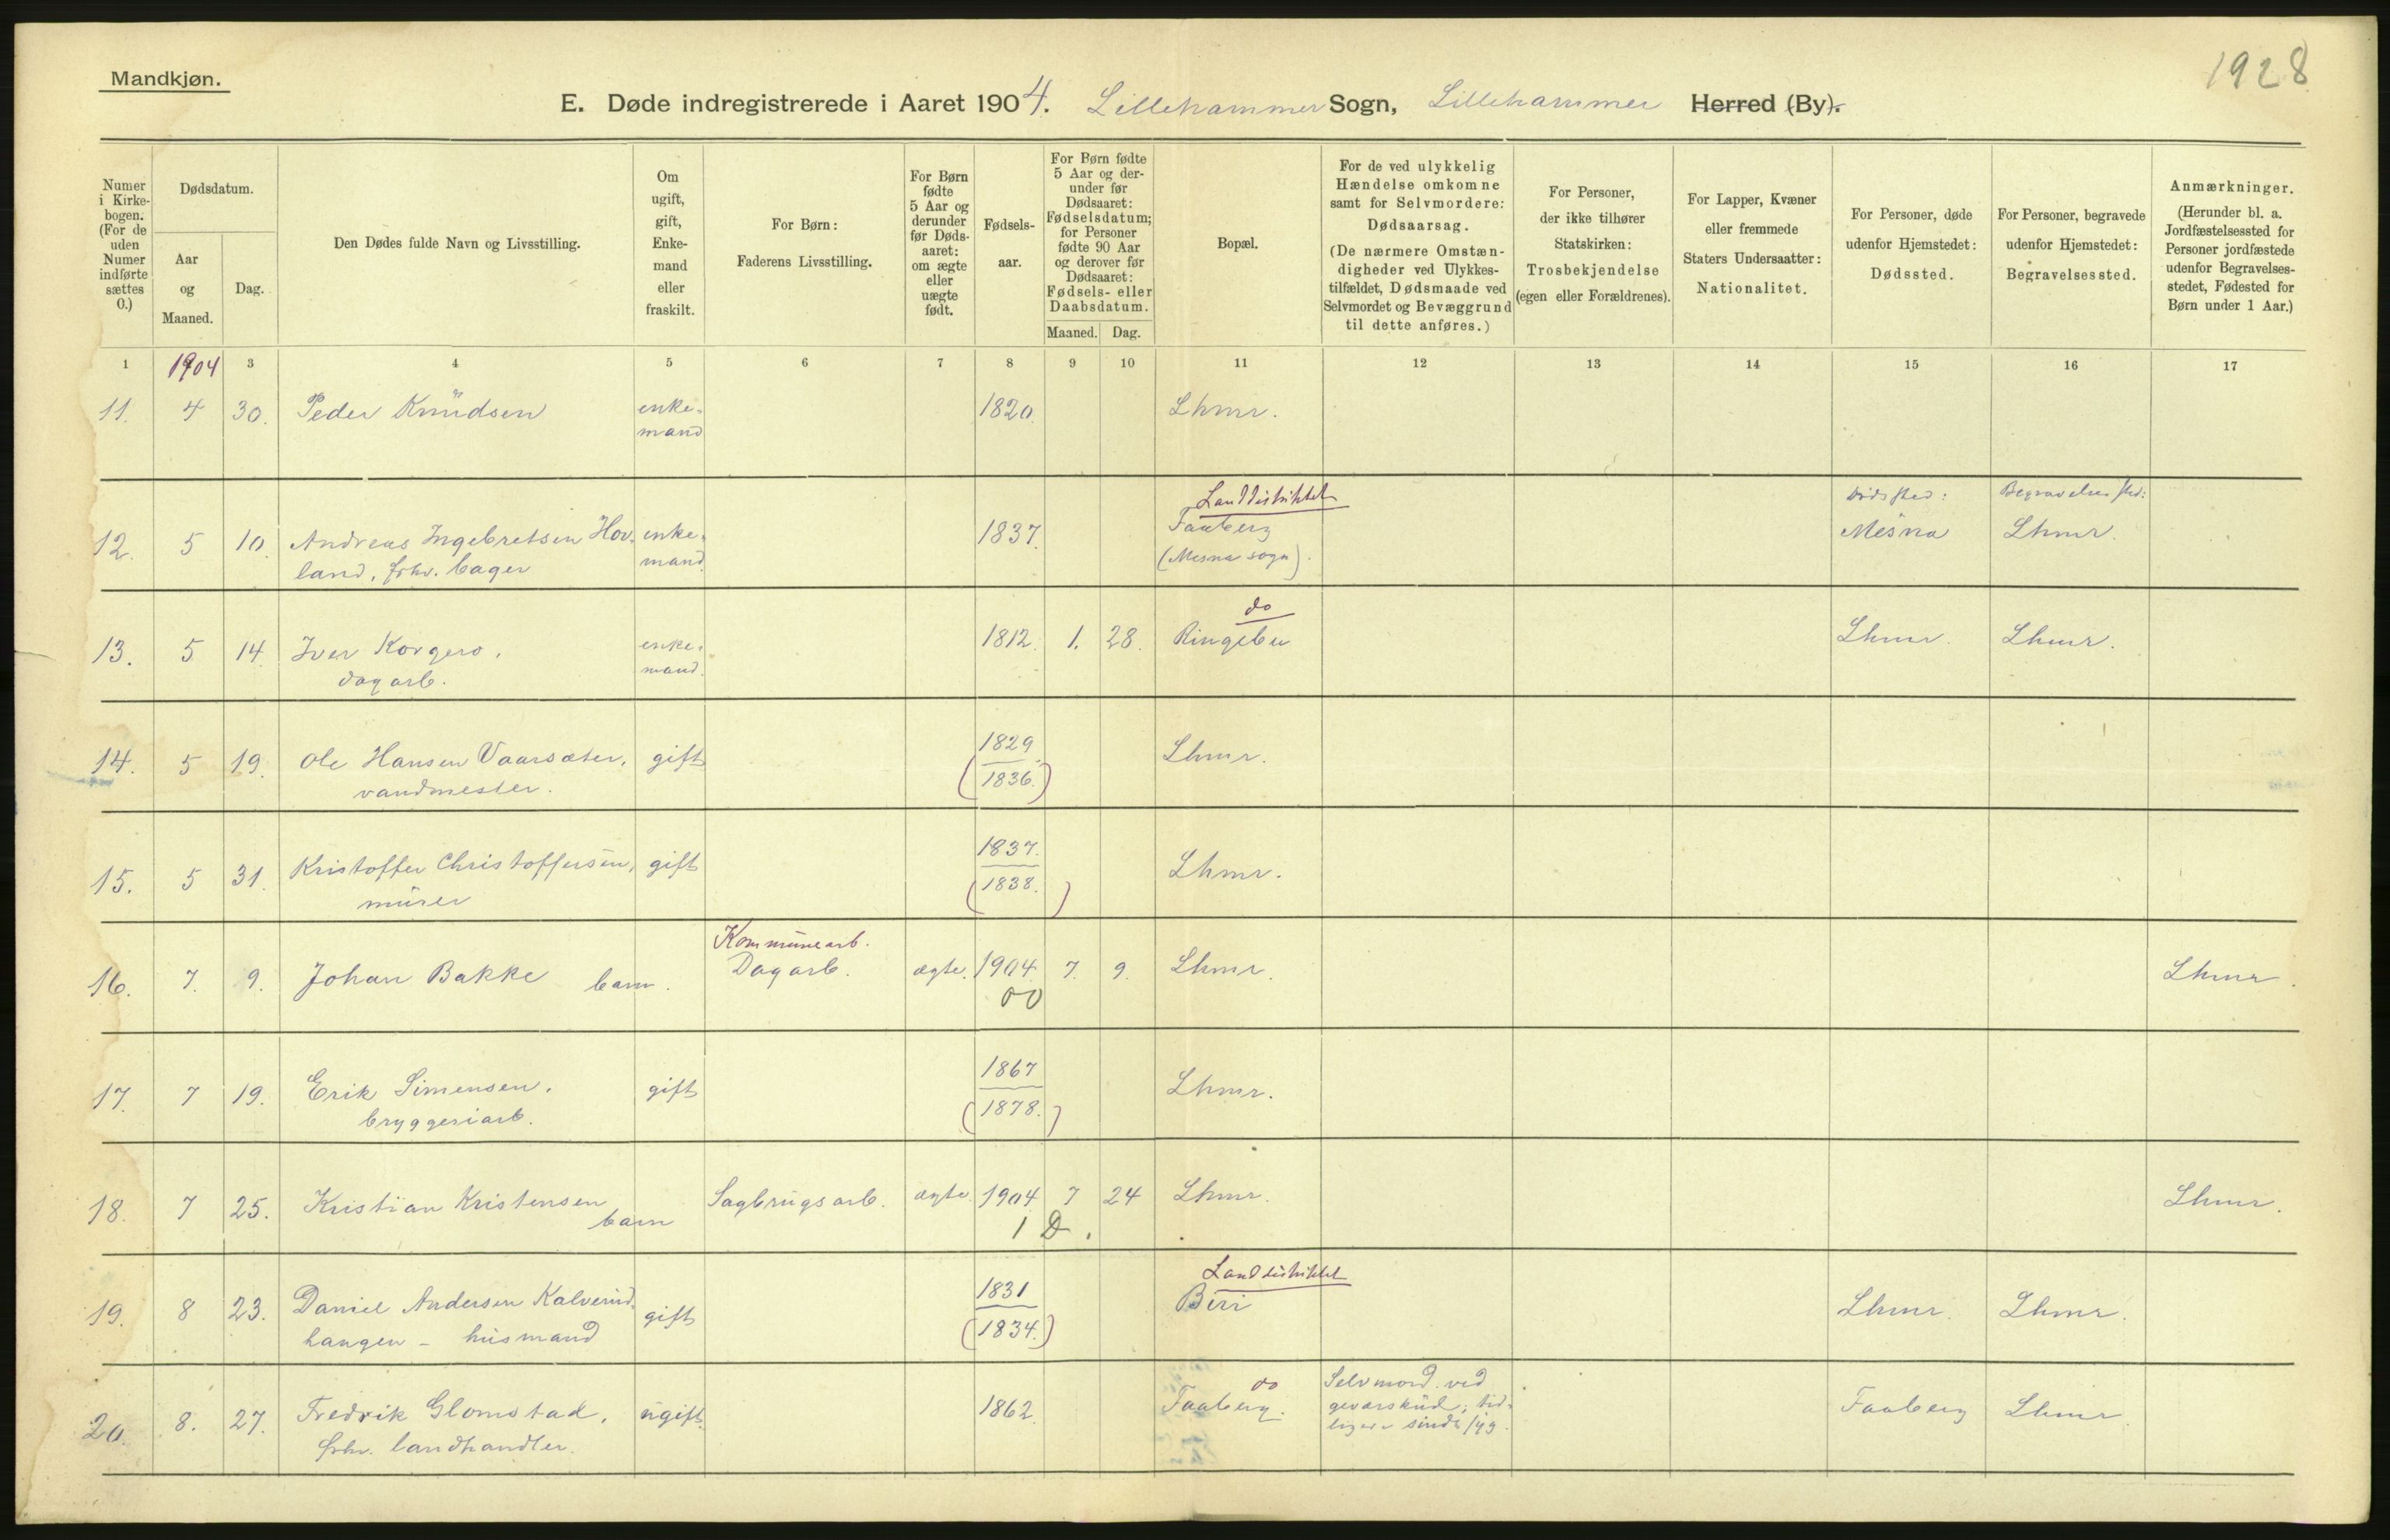 Mandkjøn.
1928
E. Døde indregistrerede i Aaret 1904. Lillehammer Sogn, Lillehammer Herred (By).
Numer i Kirkebogen. (For de uden Numer indførte sættes 0.)
Dødsdatum.
Aar og Maaned.
Dag.
Den Dødes fulde Navn og Livsstilling.
Om ugift, gift, Enkemand eller fraskilt.
For Børn: Faderens Livsstilling.
For Børn fødte 5 Aar og derunder før Dødsaaret: om ægte eller uægte født.
Fødselsaar.
For Børn fødte 5 Aar og derunder før Dødsaaret: Fødselsdatum; for Personer fødte 90 Aar og derover før Dødsaaret: Fødsels- eller Daabsdatum.
Maaned. Dag.
Bopæl.
For de ved ulykkelig Hændelse omkomne samt for Selvmordere: Dødsaarsag. (De nærmere Omstændigheder ved Ulykkestilfældet, Dødsmaade ved Selvmordet og Bevæggrund til dette anføres.)
For Personer, der ikke tilhører Statskirken: Trosbekjendelse (egen eller Forældrenes).
For Lapper, Kvæner eller fremmede Staters Undersaatter: Nationalitet.
For Personer, døde udenfor Hjemstedet: Dødssted.
For Personer, begravede udenfor Hjemstedet: Begravelsessted.
Anmærkninger. (Herunder bl. a. Jordfæstelsessted for Personer jordfæstede udenfor Begravelsesstedet, Fødested for Børn under 1 Aar.)
1 1904 3 4 5 6 7 8 9 10 11 12 13 14 15 16 17
11. 4 30. Peder Knudsen enkemand 1820. Lhmr.
Landdistriktet Dødssted: Begravelsessted:
12. 5 10. Andreas Ingebretsen Hov- enkemand 1837. Faaberg Mesna Lhmr.
land, fhv. bager (Mesna sogn).
do
13. 5 14. Iver Korgero, enkemand. 1812. 1. 28. Ringebu Lhmr. Lhmr.
dagarb.
14. 5 19. Ole Hansen Vaarsæter, gift 1829. Lhmr.
vandmester. (1836.)
15. 5 31. Kristoffer Christoffersen, gift 1837. Lhmr.
murer (1838.)
Kommunearb.
16. 7. 9. Johan Bakke barn. Dagarb. ægte. 1904. 7. 9. Lhmr. Lhmr.
00
17. 7 19. Erik Simensen. gift 1867 Lhmr.
bryggeriarb. (1878.)
18. 7 25. Kristian Kristensen Sagbrugsarb. ægte 1904 7 24 Lhmr. Lhmr.
barn 1 D.
Landdistriktet
19. 8 23. Daniel Andersen Kalverud- gift 1831 Biri Lhmr. Lhmr.
hangen - husmand (1834.)
do Selvmord ved
20. 8. 27. Fredrik Glomstad, ugift. 1862. Faaberg. geværskud; tid- Faaberg Lhmr.
fhv. landhandler. ligere sindssyg.